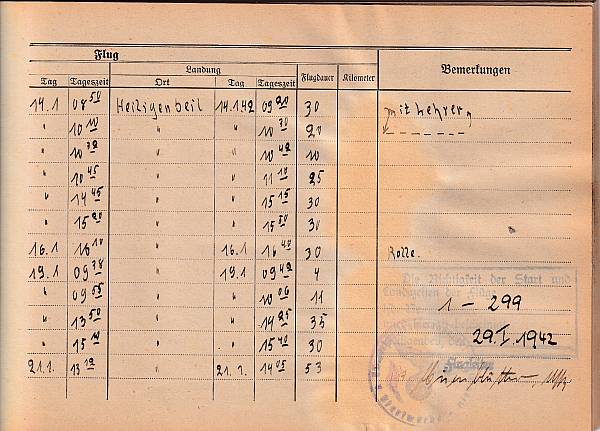 Flug
Landung
Tag Tageszeit Ort Tag Tageszeit Flugdauer Kilometer Bemerkungen
14.1 08 50 Heiligenbeil 14.1.42 09 20 30 mit Lehrer
" 10 10 " " 10 30 20
" 10 32 " " 10 42 10
" 10 45 " " 11 10 25
" 14 45 " " 15 15 30
" 15 20 " " 15 50 30
16.1 16 10 " 16.1 16 40 30 Rolle.
19.1 09 38 " 19.1 09 42 4
" 09 55 " " 10 06 11
" 13 50 " " 14 25 35
" 15 10 " " 15 40 30
21.1. 13 12 " 21.1. 14 05 53
Die Richtigkeit der Start und
1 – 299
29.I.1942